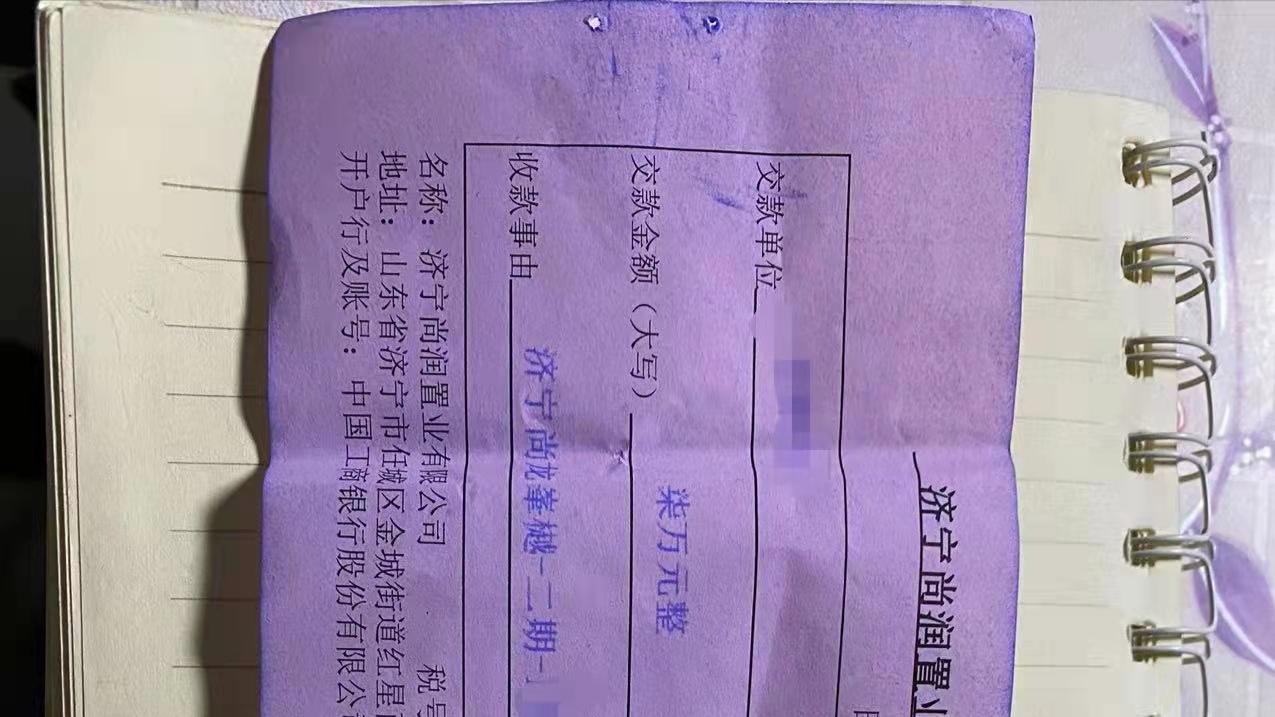 济宁尚润置业
交款单位
交款金额（大写） 柒万元整
收款事由 济宁尚龙峯樾-二期-1
名称：济宁尚润置业有限公司 税号
地址：山东省济宁市任城区金城街道红星
开户行及账号：中国工商银行股份有限公